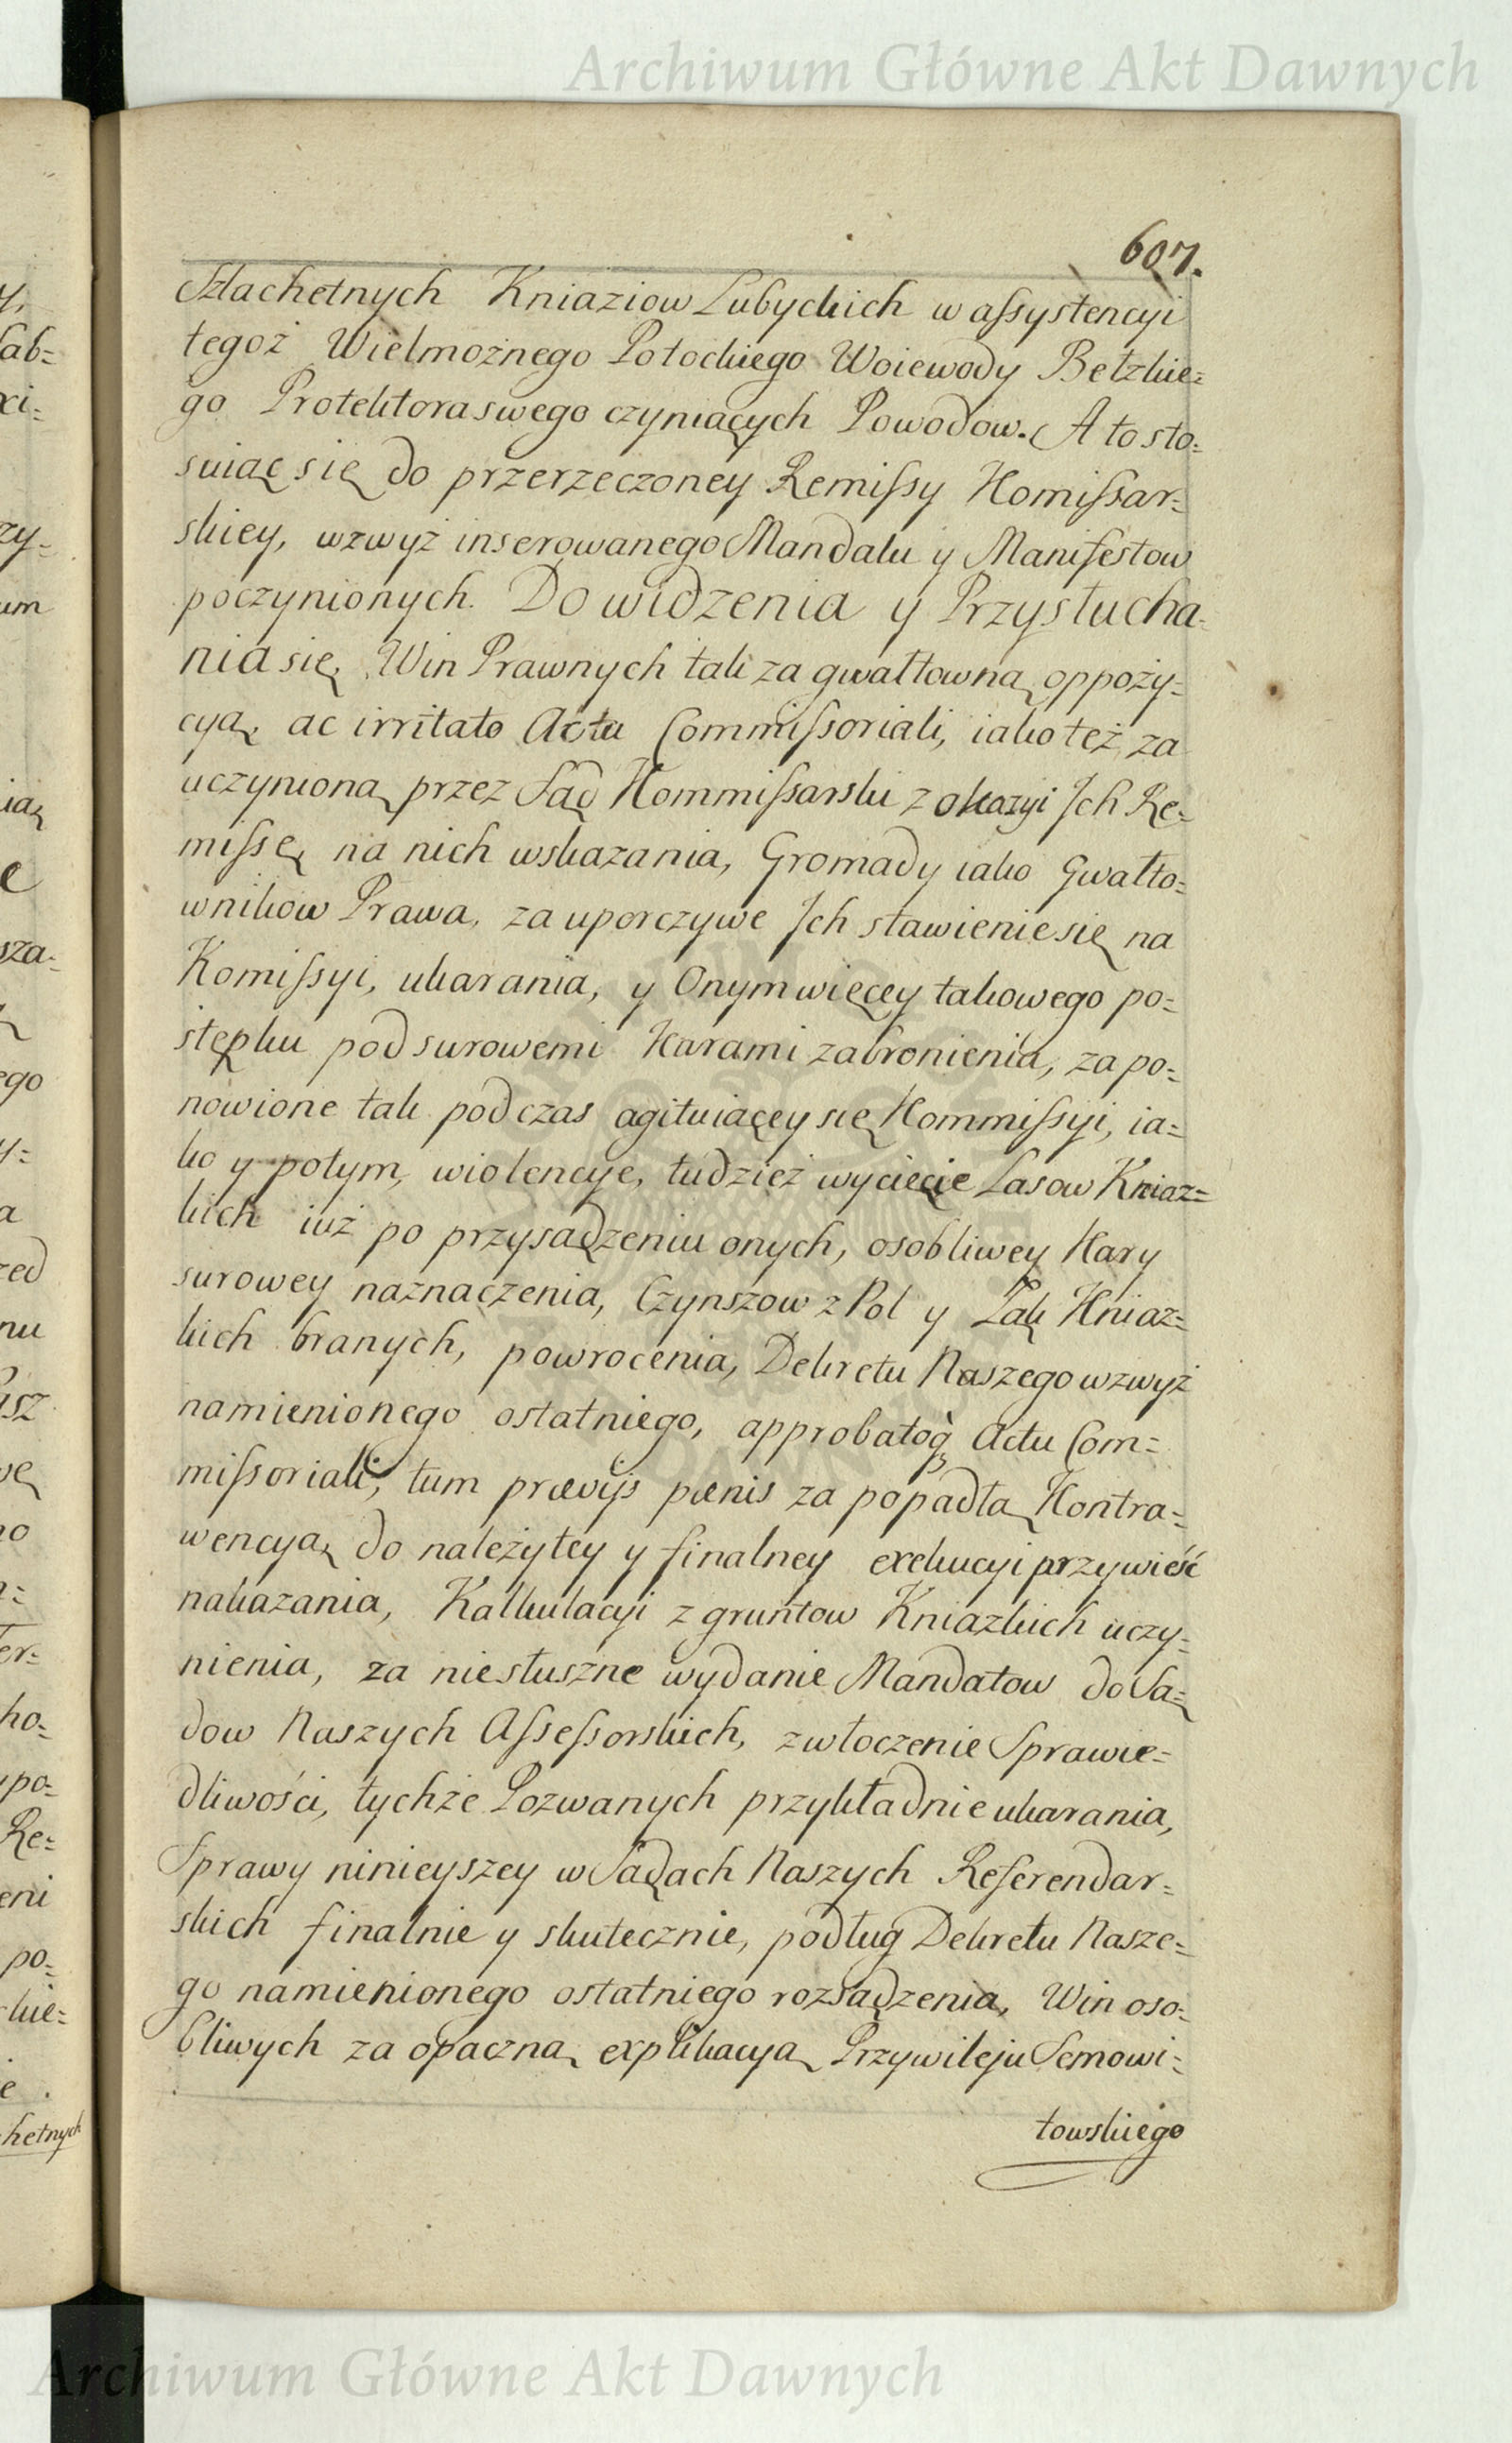 Archiwum Główne Akt Dawnych
607.
Szlachetnych Kniaziow Lubyckich w assystencyi
tegoż Wielmożnego Potockiego Woiewody Bełzkie=
go Protektora swego czyniących Powodow. A to sto=
suiąc się do przerzeczoney Remissy Komissar=
skiey, wzwyż inserowanego Mandatu y Manifestow
poczynionych. Do widzenia y Przysłucha=
nia się, Win Prawnych tak za gwałtowną oppozy=
cyą, ac irritato Actu Commissoriali, iako też za
uczynioną przez Sąd Kommissarski z okazyi Ich Re=
missę na nich wskazania, Gromady iako Gwałto=
wnikow Prawa, za uporczywe Ich stawienie się na
Komissyi, ukarania, y Onym więcey takowego po=
stępku pod surowemi Karami zabronienia, za po=
nowione tak podczas agituiącey się Kommissyi, ia=
ko y potym, wiolencye, tudzież wycięcie Lasow Kniaz=
kich iuż po przysądzeniu onych, osobliwey Kary
surowey naznaczenia, Czynszow z Pol y Łąk Kniaz=
kich branych, powrocenia, Dekretu Naszego wzwyż
namienionego ostatniego, approbatoq Actu Com=
missoriali, tum prævijs pænis za popadłą Kontra=
wencyą, do należytey y finalney exekucyi przywieść
nakazania, Kalkulacyi z gruntow Kniazkich uczy=
nienia, za niesłuszne wydanie Mandatow do Są=
dow Naszych Assessorskich, zwłoczenie Sprawie=
dliwości, tychże Pozwanych przykładnie ukarania,
Sprawy ninieyszey w Sądach Naszych Referendar=
skich finalnie y skutecznie, podług Dekretu Nasze=
go namienionego ostatniego rozsądzenia, Win oso=
bliwych za opaczną explikacyą Przywileju Semowi=
towskiego
Archiwum Główne Akt Dawnych